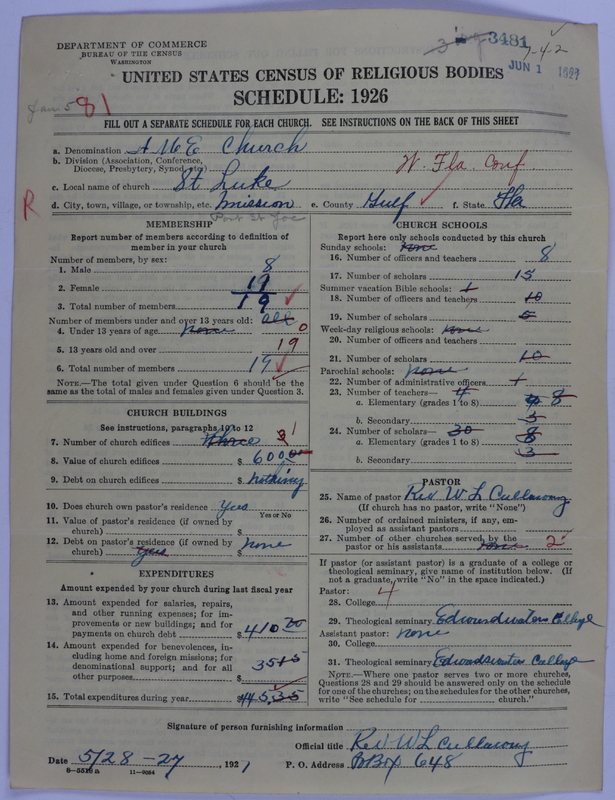 DEPARTMENT OF COMMERCE
BUREAU OF THE CENSUS
WASHINGTON
3481
7-4-2
JUN 1
UNITED STATES CENSUS OF RELIGIOUS BODIES
SCHEDULE: 1926
81
FILL OUT A SEPARATE SCHEDULE FOR EACH CHURCH. SEE INSTRUCTIONS ON THE BACK OF THIS SHEET
a. Denomination A M E Church
b. Division (Association, Conference, Diocese, Presbytery, Synod, etc.) W. Fla. Conf
c. Local name of church St Luke
R d. City, town, village, or township, etc. Mission e. County Gulf f. State Fla
Port St Joe
MEMBERSHIP
Report number of members according to definition of member in your church
Number of members, by sex:
1. Male 8
2. Female 11
3. Total number of members 19
Number of members under and over 13 years old: all
4. Under 13 years of age none 0
5. 13 years old and over 19
6. Total number of members 19
NOTE.—The total given under Question 6 should be the same as the total of males and females given under Question 3.
CHURCH BUILDINGS
See instructions, paragraphs 10 to 12
7. Number of church edifices 1
8. Value of church edifices $ 600
9. Debt on church edifices $ nothing
10. Does church own pastor's residence yes
Yes or No
11. Value of pastor's residence (if owned by church) $
12. Debt on pastor's residence (if owned by church) $ none
EXPENDITURES
Amount expended by your church during last fiscal year
13. Amount expended for salaries, repairs, and other running expenses; for improvements or new buildings; and for payments on church debt $ 410 00
14. Amount expended for benevolences, including home and foreign missions; for denominational support; and for all other purposes $ 35
15. Total expenditures during year $ 445
CHURCH SCHOOLS
Report here only schools conducted by this church
Sunday schools: none
16. Number of officers and teachers 8
17. Number of scholars 15
Summer vacation Bible schools: 1
18. Number of officers and teachers 10
19. Number of scholars
Week-day religious schools: none
20. Number of officers and teachers
21. Number of scholars 10
Parochial schools: none
22. Number of administrative officers
23. Number of teachers— 4
a. Elementary (grades 1 to 8) 8
b. Secondary 5
24. Number of scholars— 30
a. Elementary (grades 1 to 8) 8
b. Secondary 3
PASTOR
25. Name of pastor Rev W L Cullasony
(If church has no pastor, write "None")
26. Number of ordained ministers, if any, employed as assistant pastors
27. Number of other churches served by the pastor or his assistants 2
If pastor (or assistant pastor) is a graduate of a college or theological seminary, give name of institution below. (If not a graduate, write "No" in the space indicated.)
Pastor: 4
28. College
29. Theological seminary Edwardwaters College
Assistant pastor: none
30. College
31. Theological seminary Edwardwaters College
NOTE.—Where one pastor serves two or more churches, Questions 28 and 29 should be answered only on the schedule for one of the churches; on the schedules for the other churches, write "See schedule for church."
Signature of person furnishing information
Official title Rev W L Cullasony
Date 5/28-27, 1927 P. O. Address P O Box 648
8-3518 a 11-9064